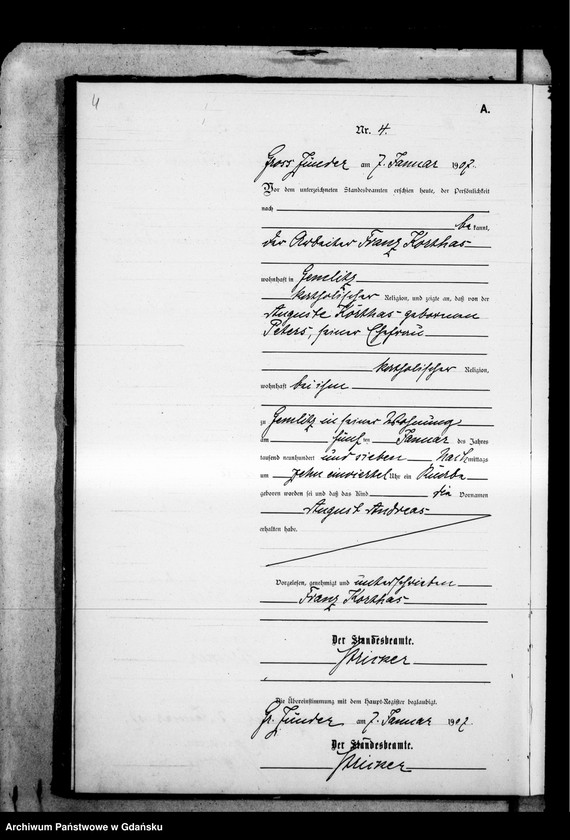 4
A.
Nr. 4.
Gross Zünder am 7. Januar 1907.
Vor dem unterzeichneten Standesbeamten erschien heute, der Persönlichkeit
nach
bekannt,
der Arbeiter Franz Korthas
wohnhaft in Gemlitz
katholischer Religion, und zeigte an, daß von der
Auguste Korthas gebornen
Peters, seiner Ehefrau
katholischer Religion,
wohnhaft bei ihm
zu Gemlitz in seiner Wohnung
am fünften Januar des Jahres
tausend neunhundert und sieben Nachmittags
um zehn einviertel Uhr ein Knabe
geboren worden sei und daß das Kind die Vornamen
August Andreas
erhalten habe.
Vorgelesen, genehmigt und unterschrieben
Franz Korthas
Der Standesbeamte.
Die Übereinstimmung mit dem Haupt-Register beglaubigt.
Gr. Zünder am 7. Januar 1907.
Der Standesbeamte.
Archiwum Państwowe w Gdańsku